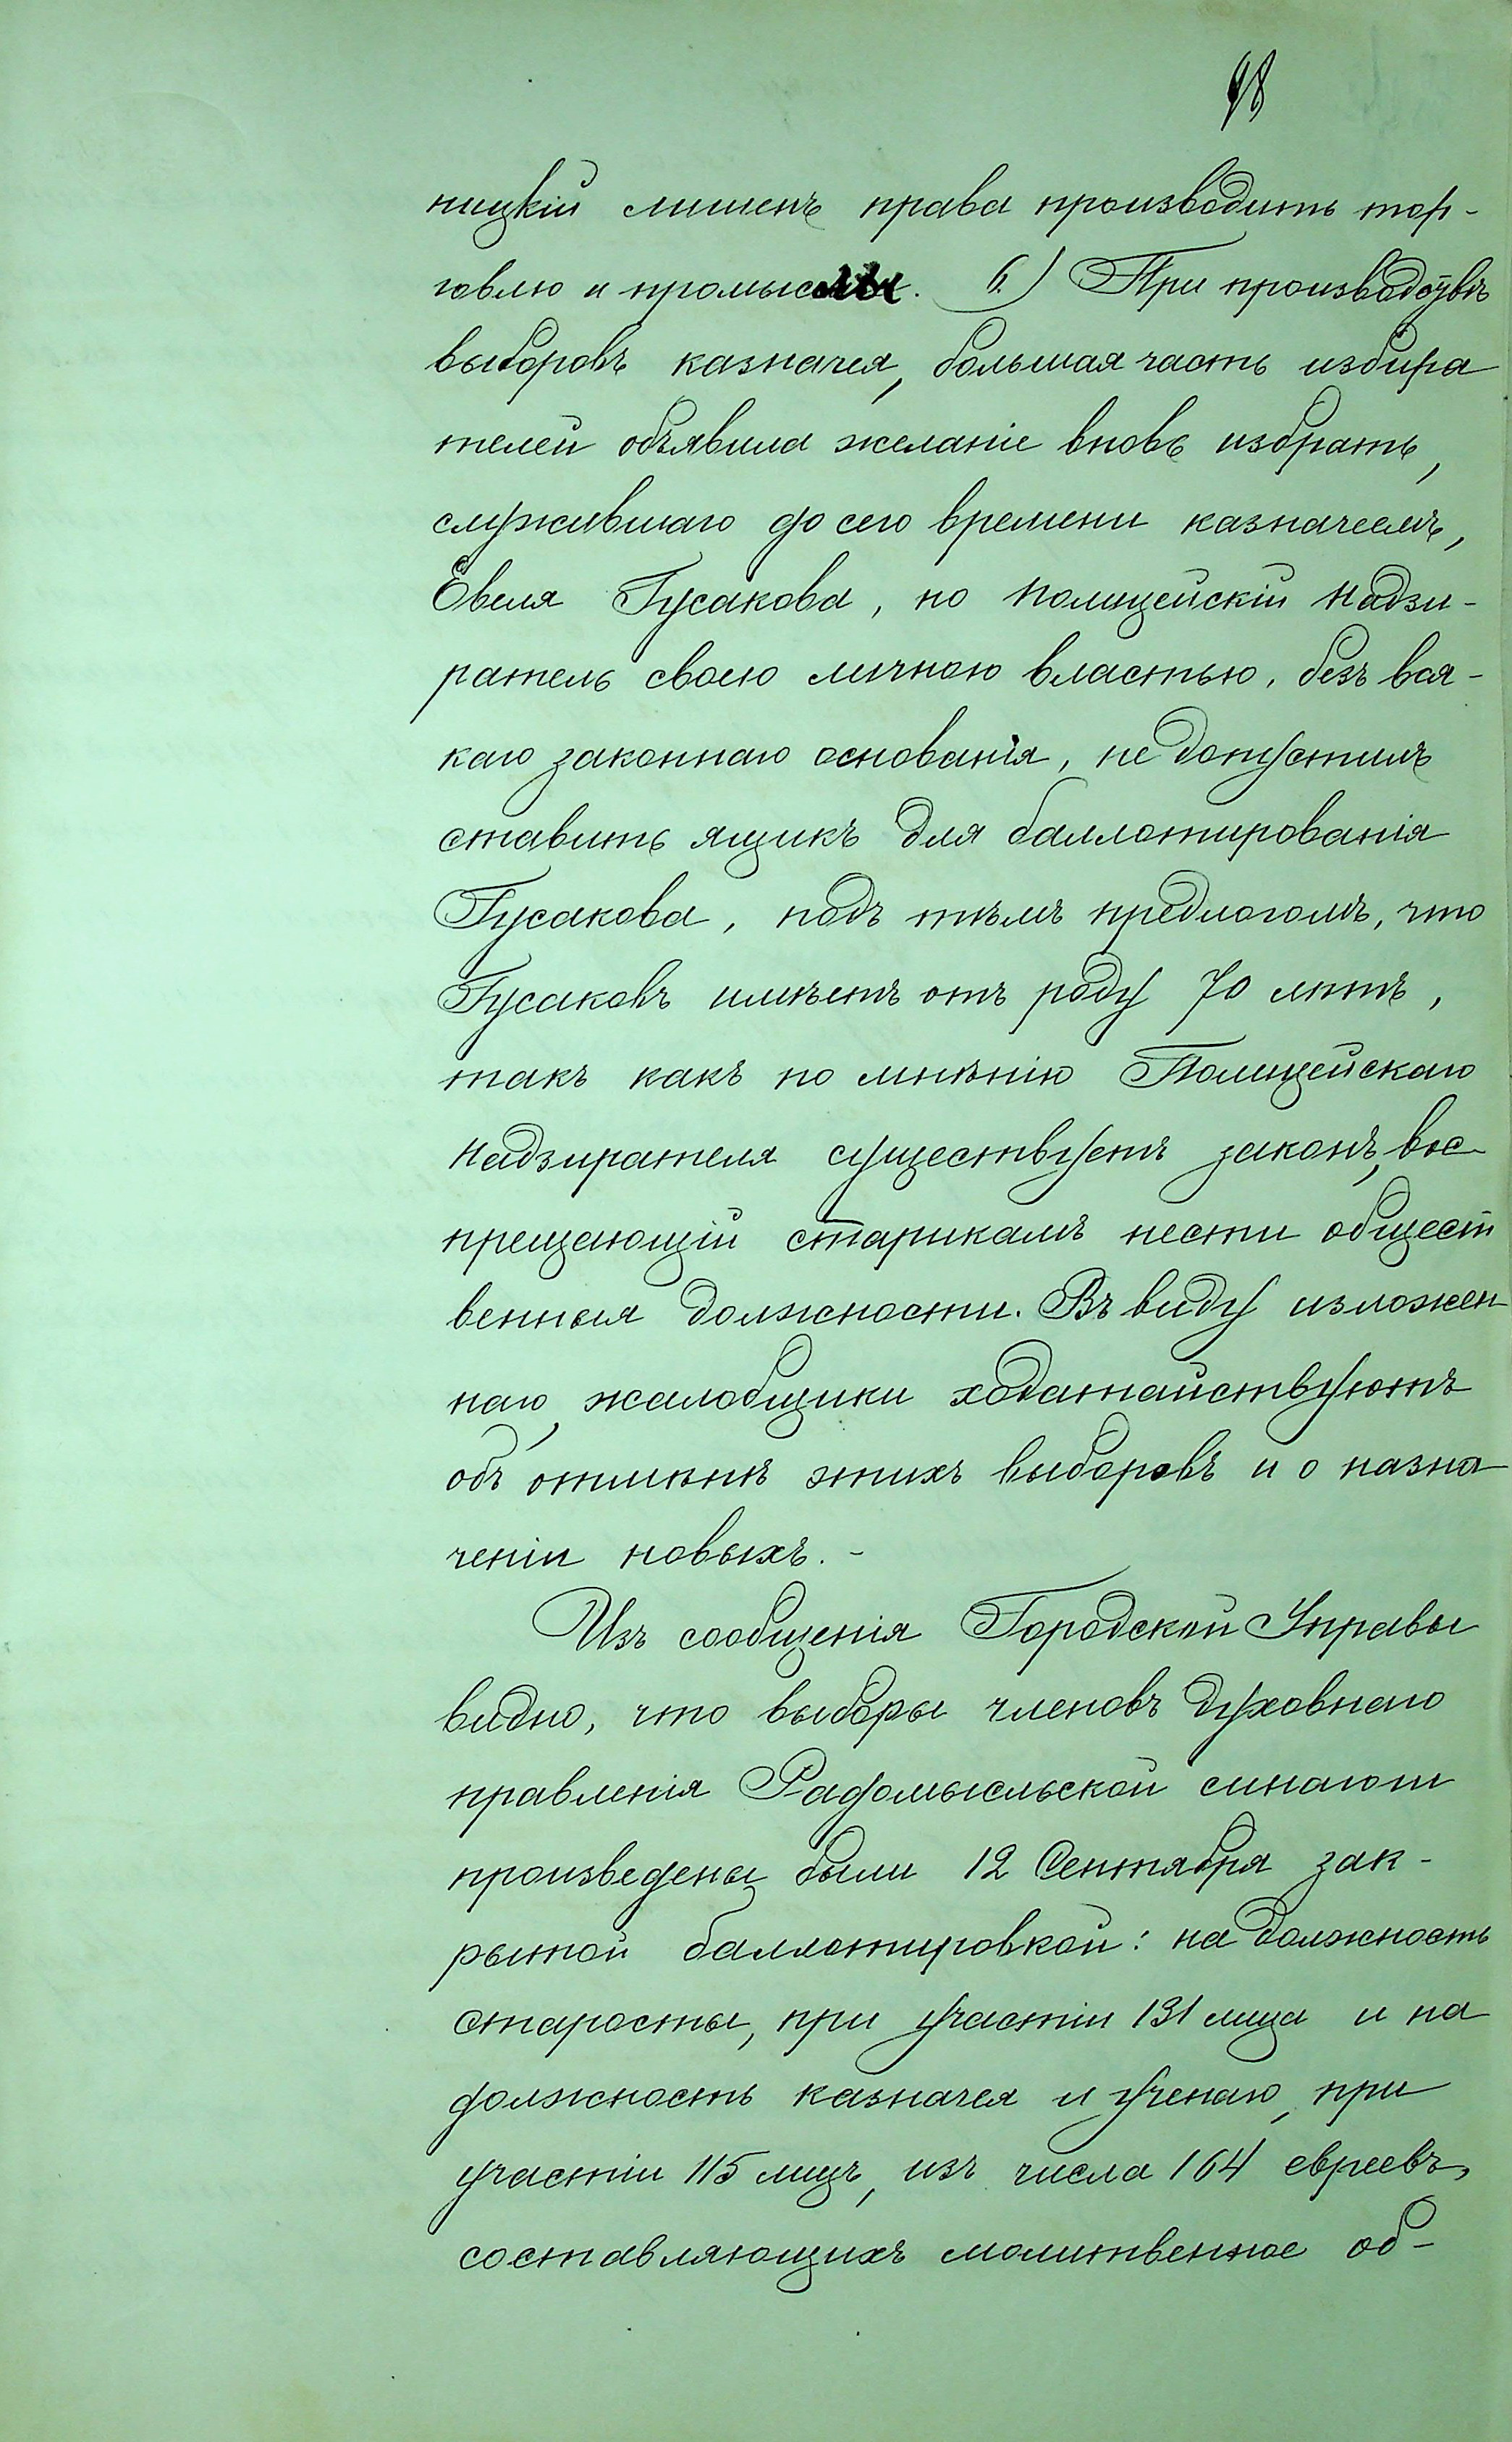 98
ницкій лишенъ права производить тор-
говлю и промыслы. 6.) При производствѣ
выборовъ казначея, большая часть избира
телей объявила желаніе вновь избрать,
служившаго до сего времени казначеемъ,
Евеля Гусакова, но Полицейскій Надзи-
ратель своею личною властью, безъ вся-
каго законнаго основанія, не допустилъ
ставить ящикъ для баллотированія
Гусакова, подъ тѣмъ предлогомъ, что
Гусаковъ имѣетъ отъ роду 70 лѣтъ,
такъ какъ по мнѣнію Полицейскаго
Надзирателя существуетъ законъ, вос
прещающій старикамъ нести общест
венныя должности. Въ виду изложен
наго, жалобщики ходатайствуютъ
объ отмѣнѣ этихъ выборовъ и о назна
ченіи новыхъ. -
Изъ сообщенія Городской Управы
видно, что выборы членовъ духовнаго
правленія Радомысльской синагоги
произведены были 12 Сентября зак-
рытой баллотировкой: на должность
старосты, при участіи 131 лица и на
должность казначея и ученаго, при
участіи 115 лицъ, изъ числа 164 евреевъ,
составляющихъ молитвенное об-